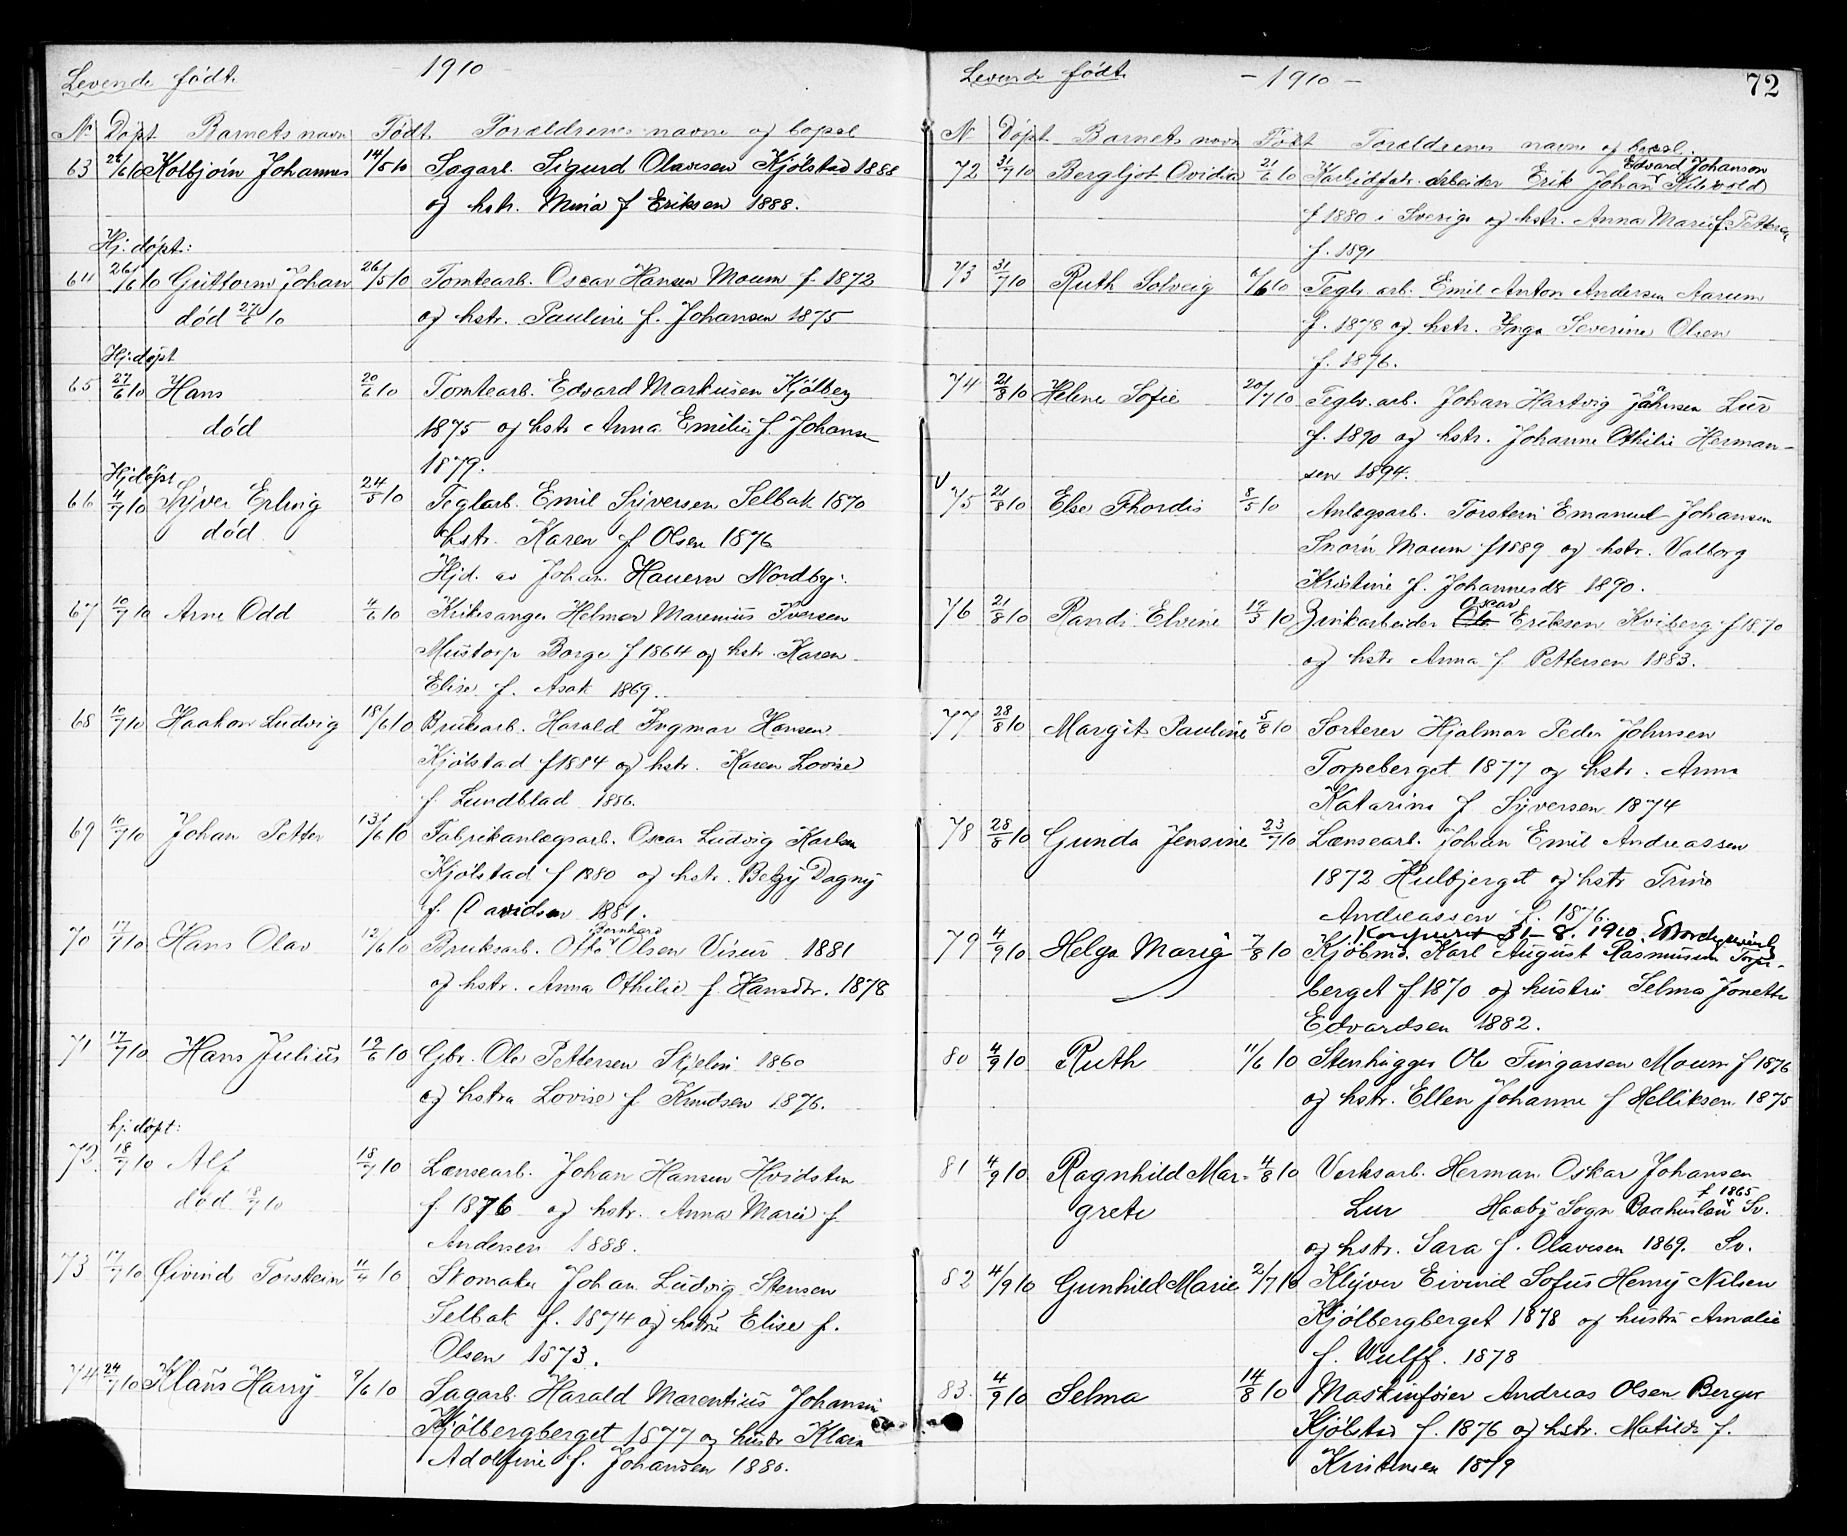 Levende født.
- 1910 -
Nr Døpt Barnets navn Født Forældrenes navne og bopæl
63 26/6 10 Kolbjørn Johannes 14/5 10 Sagarb. Sigurd Olavesen Kjølstad 1888
og hstr. Mina f Eriksen 1888.
Hj. døpt:
64 26/6 10 Guttorm Johan 26/5 10 Tomtearb. Oscar Hansen Moum f. 1872
død 27/6 10 og hstr. Pauline f. Johansen 1875
Hj. døpt
65 27/6 10 Hans 20/6 10 Tomtearb. Edvard Markusen Kjølberg
død 1875 og hstr Anna Emilie f. Johanse
1879.
Hjdøpt
66 4/7 10 Syver Erling 24/5 10 Teglarb. Emil Syversen Selbak 1870
død hstr. Karen f Olsen 1876
Hjd. av Johan Hauern Nordby.
67 10/7 10 Arne Odd 4/6 10 Kirkesanger Helmer Marenius Iversen
Mustorp Borge f 1864 og hstr. Karen
Elise f. Asak 1869.
68 10/7 10 Haakon Ludvig 18/6 10 Bruksarb. Harald Ingmar Hansen
Kjølstad f 1884 og hstr. Karen Lovise
f. Lundblad 1886.
69 10/7 10 Johan Petter 13/6 10 Fabrikanlægsarb. Oscar Ludvig Karlsen
Kjølstad f 1880 og hstr. Betzy Dagny
f. Davidsen 1881.
Bernhard
70 17/7 10 Hans Olav 12/6 10 Bruksarb. Otto Olsen Visur 1881
og hstr. Anna Othilie f. Hansdtr. 1878
71 17/7 10 Hans Julius 19/6 10 Gbr. Ole Pettersen Skjelin 1860
og hstra Lovise f Knudsen 1876.
hj. døpt:
72. 18/7 10 Alf 18/7 10 Lænsearb. Johan Hansen Hvidsten
død 18/7 10 f. 1876 og hstr. Anna Marie f.
Andersen 1888.
73 17/7 10 Øivind Torstein 11/4 10 Skomaker Johan Ludvig Stensen
Selbak f. 1874 og hstru Elise f.
Olsen 1873.
74 24/7 10 Klaus Harry 9/6 10 Sagarb. Harald Marentius Johansen
Kjølbergberget 1877 og hustr Klara
Adolfine f. Johansen 1880.
Levende født.
- 1910 -
72
N Døpt Barnets navn Født Forældrenes navne og bopæl.
Edvard Johanson
72 31/7 10 Bergljot Ovidia 21/6 10 Karbidfabr. arbeider Erik Johan
f 1880 i Sverige og hstr. Anna Marie f. Petters
f. 1891
73 31/7 10 Ruth Solveig 6/6 10 Teglv. arb. Emil Anton Andersen Aarum
f. 1878 og hstr. Inga Severine Olsen
f. 1876.
74 21/8 10 Helene Sofie 20/7 10 Teglv. arb. Johan Hartvig Johnsen Lur
f. 1890 og hstr. Johanne Othilie Herman-
sen 1894.
v 75 21/8 10 Else Thordis 8/5 10 Anlægsarb. Torstein Emanuel Johansen
Snarin Moum f 1889 og hstr. Valborg
Kristine f. Johannesdtr 1890.
Oscar
76 21/8 10 Randi Elvine 19/3 10 Zinkarbeider Ole Eriksen Kviberg f 1870
og hstr Anna f Pettersen 1883.
77 28/8 10 Margit Pauline 5/8 10 Sorterer Hjalmar Peder Johnsen
Torpeberget 1877 og hstr. Anna
Katarina f Syversen 1874
78 28/8 10 Gunda Jensine 23/7 10 Lænsearb. Johan Emil Andreassen
1872 Hulbjerget og hstr Trine
Andreassen f. 1876.
Konfirmert 31-8. 1910
79 4/9 10 Helga Marie 7/8 10 Kjøbmd. Karl August Rasmussen Torpe-
berget f 1870 og hustru Selma Jonette
Edvardsen 1882.
80 4/9 10 Ruth 11/6 10 Stenhugger Ole Fingarsen Moum f 1876
og hstr. Ellen Johanne f Helliksen 1875
81 4/9 10 Ragnhild Mar- 4/8 10 Verksarb. Herman Oskar Johansen
f 1865
grete Lur Haaby Sogn Baahuslän Sv.
og hstr. Sara f. Olavesen 1869. Sv.
82 4/9 10 Gunhild Marie 2/7 10 Klyver Eivind Sofus Henry Nilsen
Kjølbergberget 1878 og hustru Amalie
f. Wulff. 1878
83. 4/9 10 Selma 14/8 10 Maskinfører Andreas Olsen Berger
Kjølstad f. 1876 og hstr. Matilde f.
Kristensen 1879